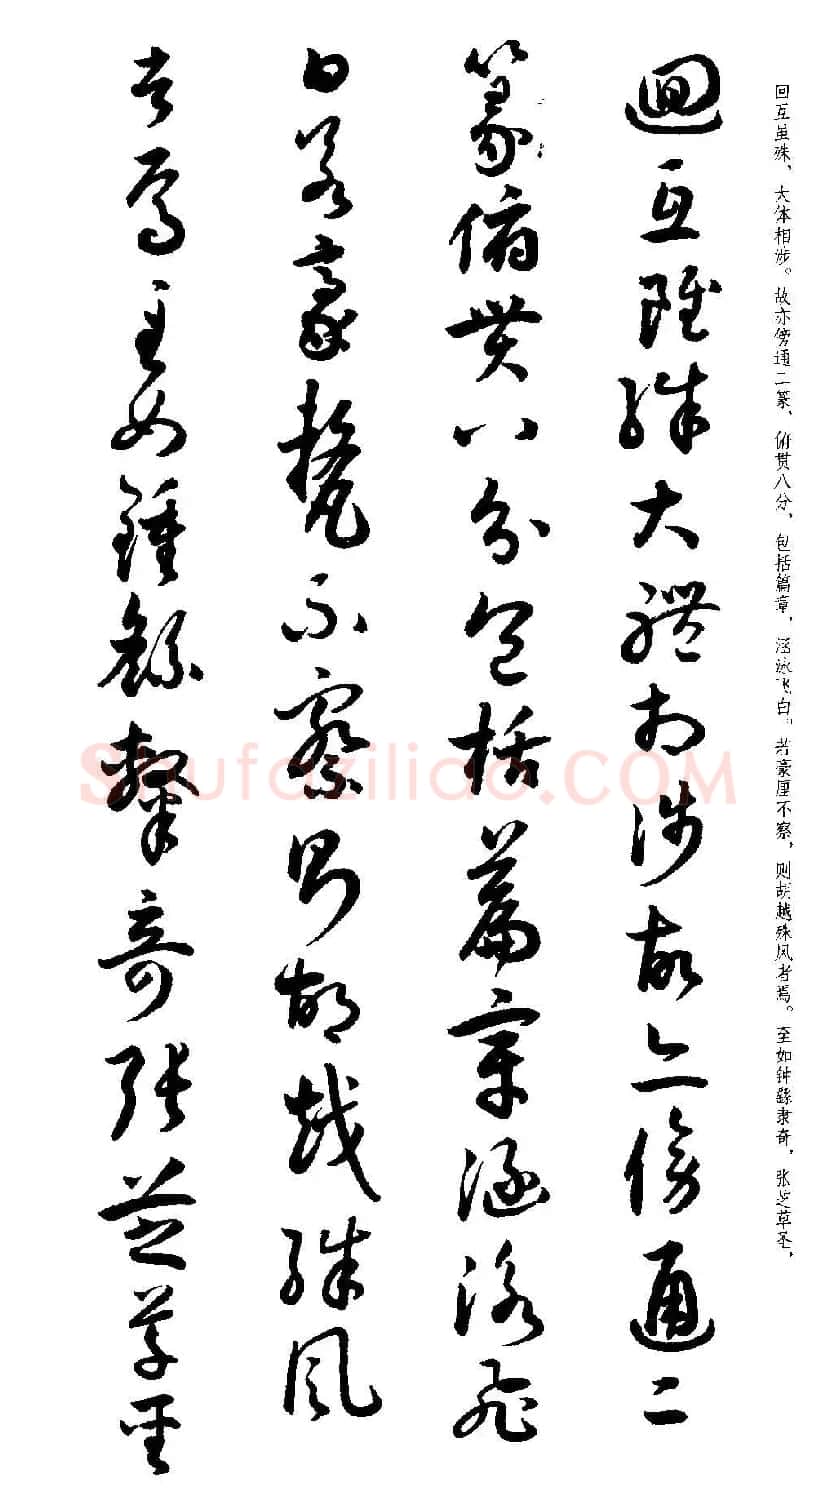 回互虽殊、大体相涉。故亦傍通二篆、俯贯八分，包括篇章，涵泳飞白。若豪厘不察，则胡越殊风者焉。至如钟繇隶奇，张芝草圣，
迴互雖殊大體相涉故亦傍通二
篆俯貫八分包括篇章涵泳飛
白若豪氂不察則胡越殊風
者焉至如鍾繇隸奇張芝草聖
Shufaziliao.COM